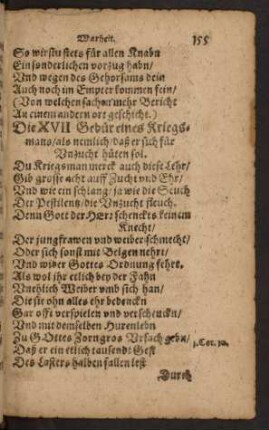 Warheit. 155
So wirstu stets für allen Knabn
Ein sonderlichen vorzug habn/
Vnd wegen des Gehorsams dein
Auch noch im Empter kommen fein/
(Von welchen sachen mehr Bericht
An einem andern ort geschicht.)
Die XVII Gebür eines Kriegs-
mans/ als nemlich/ daß er sich für
Vnzucht hüten sol.
Du Kriegsman merck auch diese Lehr/
Gib grosse acht auff Zucht vnd Ehr/
Vnd wie ein schlang/ ja wie die Seuch
Der Pestilentz/ die Vnzucht fleuch.
Denn Gott der HErr schenckts keinem
Knecht/
Der jungfrawen vnd weiber schmecht/
Oder sich sonst mit Belgen nehrt/
Vnd wider Gottes Ordnung fehrt.
Als wol ihr etlich bey der Fahn
Vnehlich Weiber vmb sich han/
Die sie ohn alles ehr bedencken
Gar offt verspielen vnd verschencken/
Vnd mit demselben Hurenlebn
Zu GOttes Zorn gros Vrsach gebn/
1. Cor. 10.
Daß er ein etlich tausend Gest
Des Lasters halben fallen lest
Durch